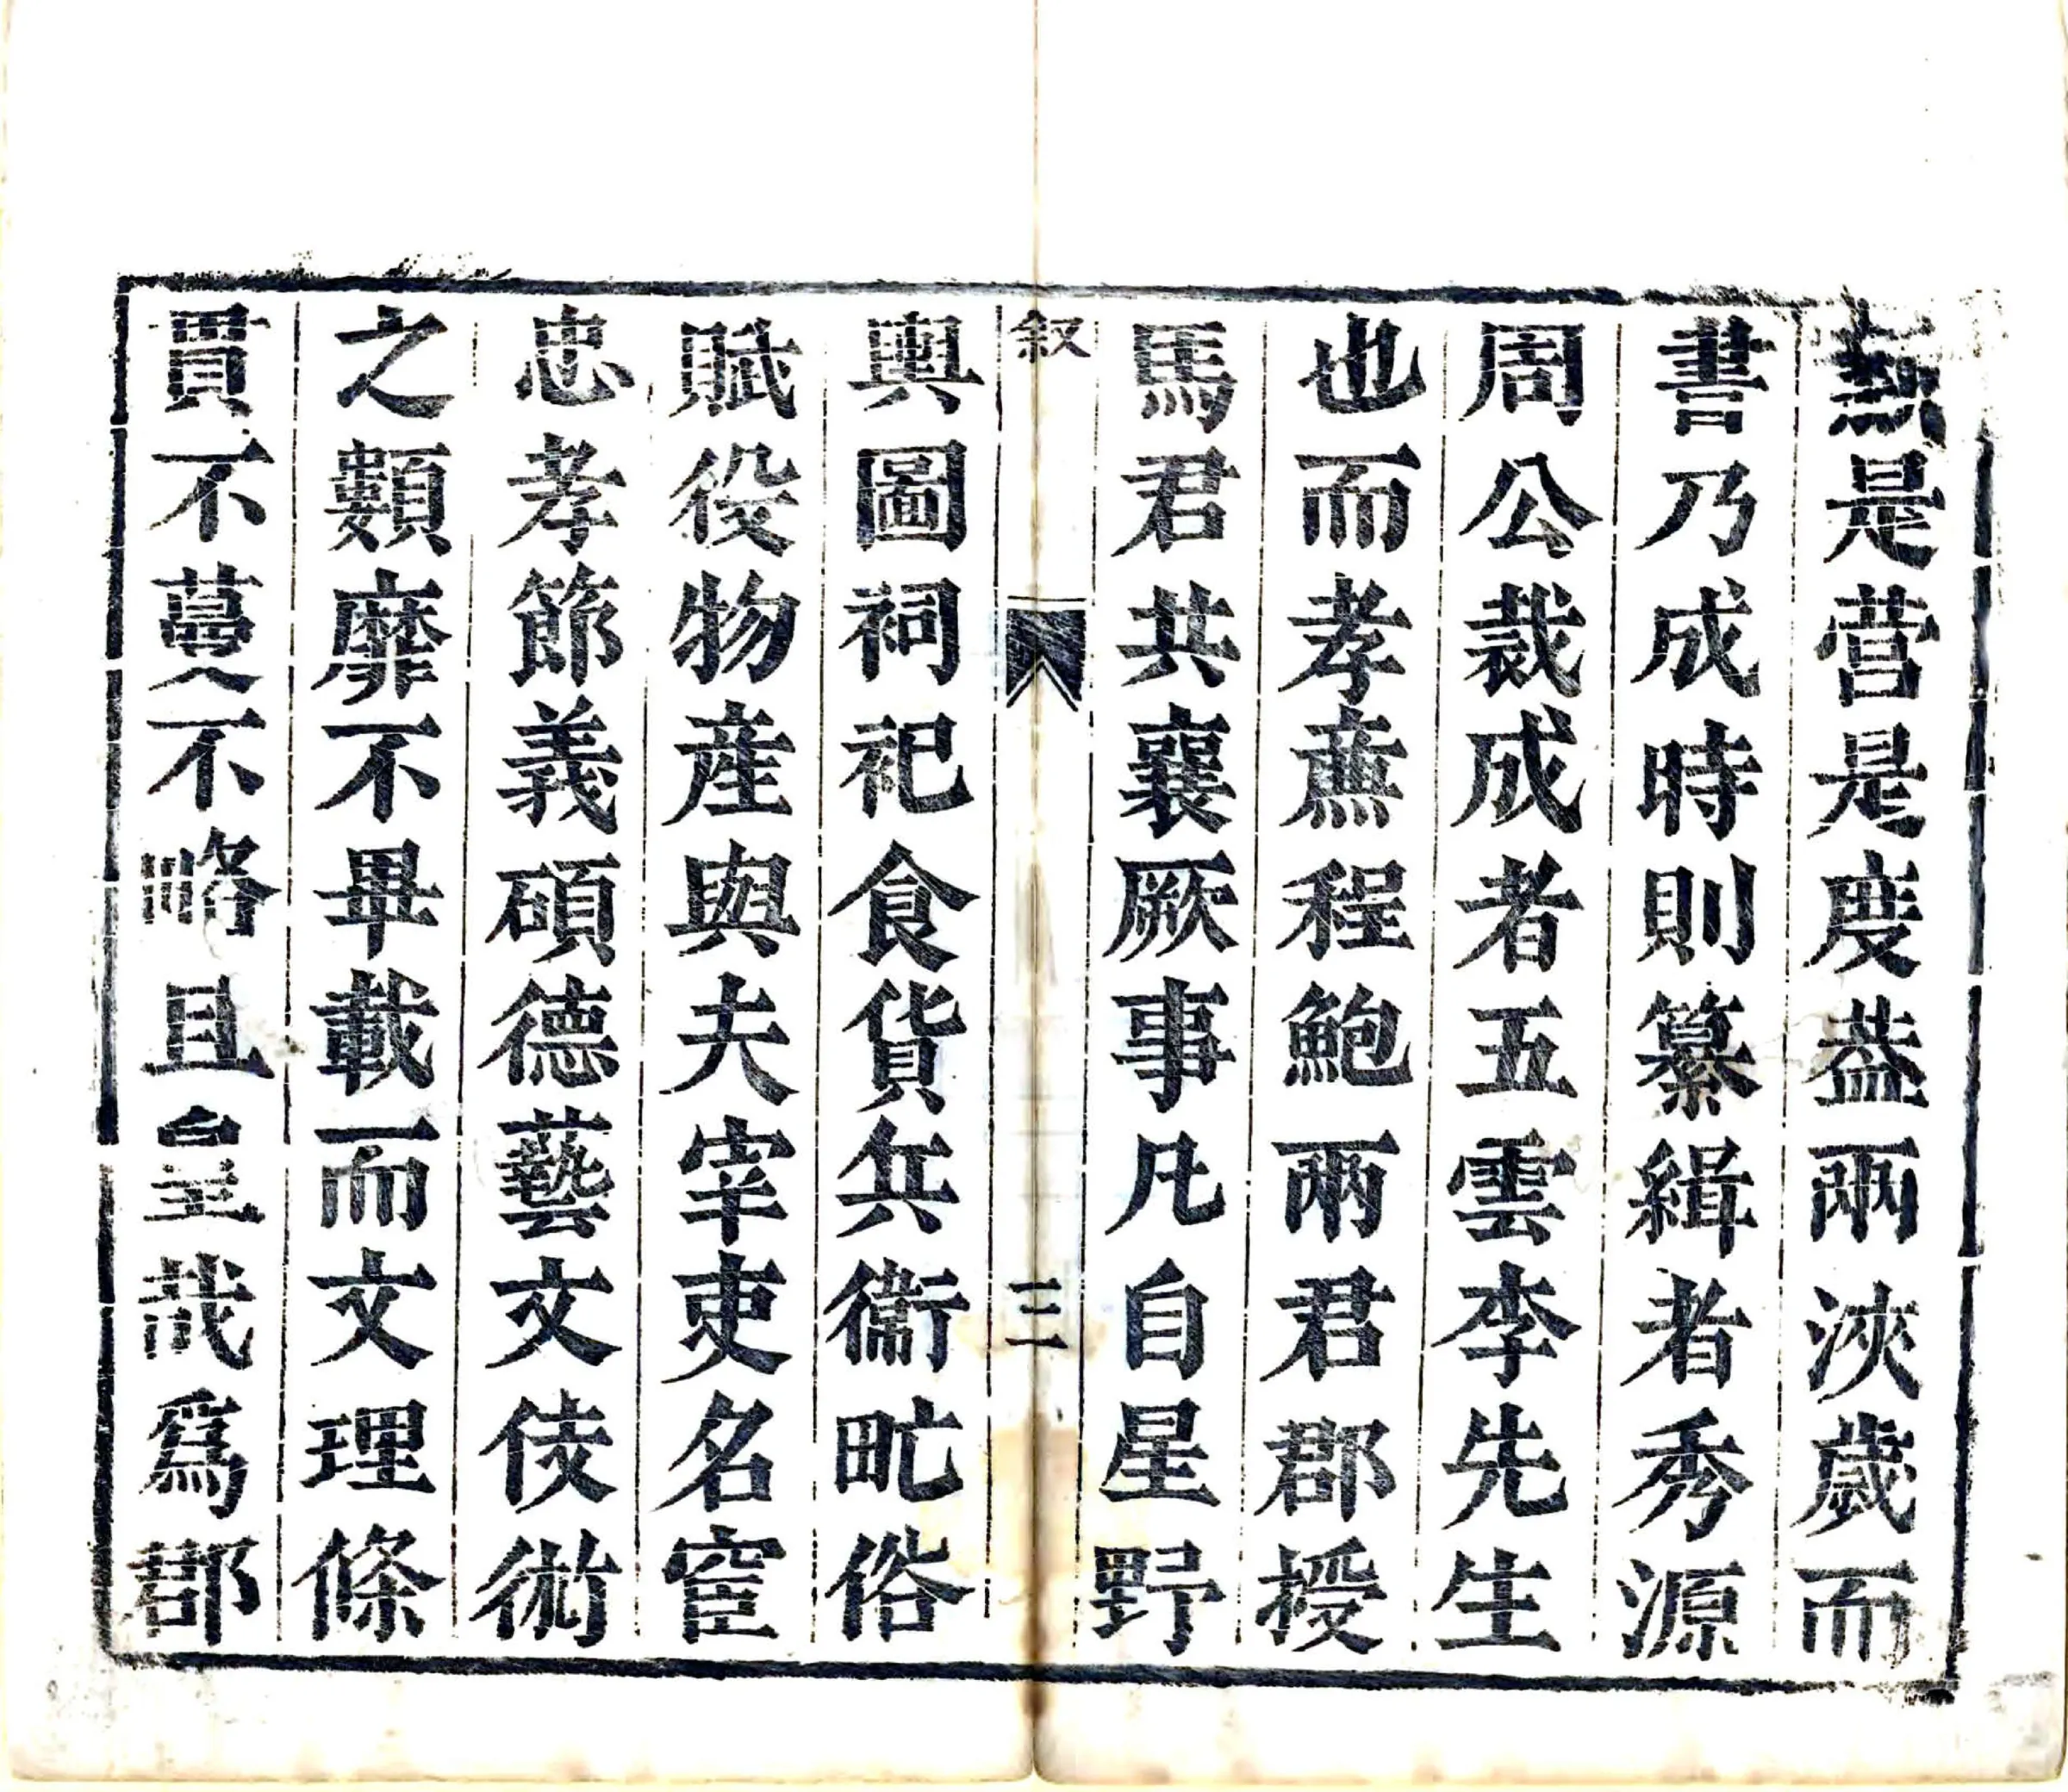 是營是度葢兩浹歲而
書乃成時則纂緝者秀源
周公裁成者五雲李先生
也而孝亷程鮑兩君郡授
馬君共襄厥事凡自星野
叙 三
輿圖祠祀食貨兵衞甿俗
賦役物産與夫宰吏名宦
忠孝節義碩德藝文伎術
之類靡不畢載而文理條
貫不蔓不略且皇哉爲郡